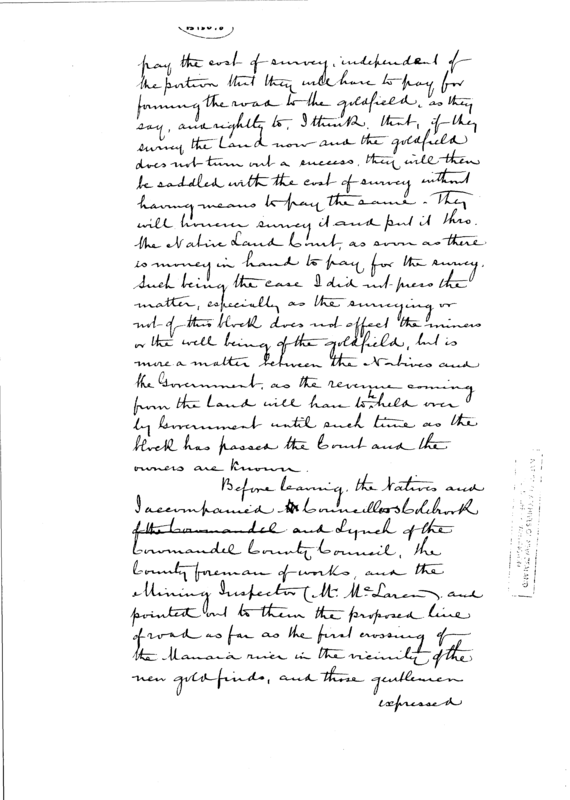 pay the cost of survey, independent of
the portion that they will have to pay for
forming the road to the goldfield, as they
say, and rightly to, I think, that, if they
survey the Land now and the goldfield
does not turn out a success, they will then
be saddled with the cost of survey without
having means to pay the same. They
will however survey it and put it thro.
the Native Land Court, as soon as there
is money in hand to pay for the survey.
Such being the case I did not press the
matter, especially as the surveying or
not of this block does not affect the miners
or the well being of the goldfield, but is
more a matter between the Natives and
the Government, as the revenue coming
from the Land will have to be held over
by Government until such time as the
block has passed the Court and the
owners are known.
Before leaving, the Natives and
I accompanied Councillors Colebrook
of the Coromandel and Lynch of the
Coromandel County Council, the
County foreman of works, and the
Mining Inspector (Mr. McLaren) and
pointed out to them the proposed line
of road as far as the first crossing of
the Manaia river in the vicinity of the
new gold finds, and those gentlemen
expressed